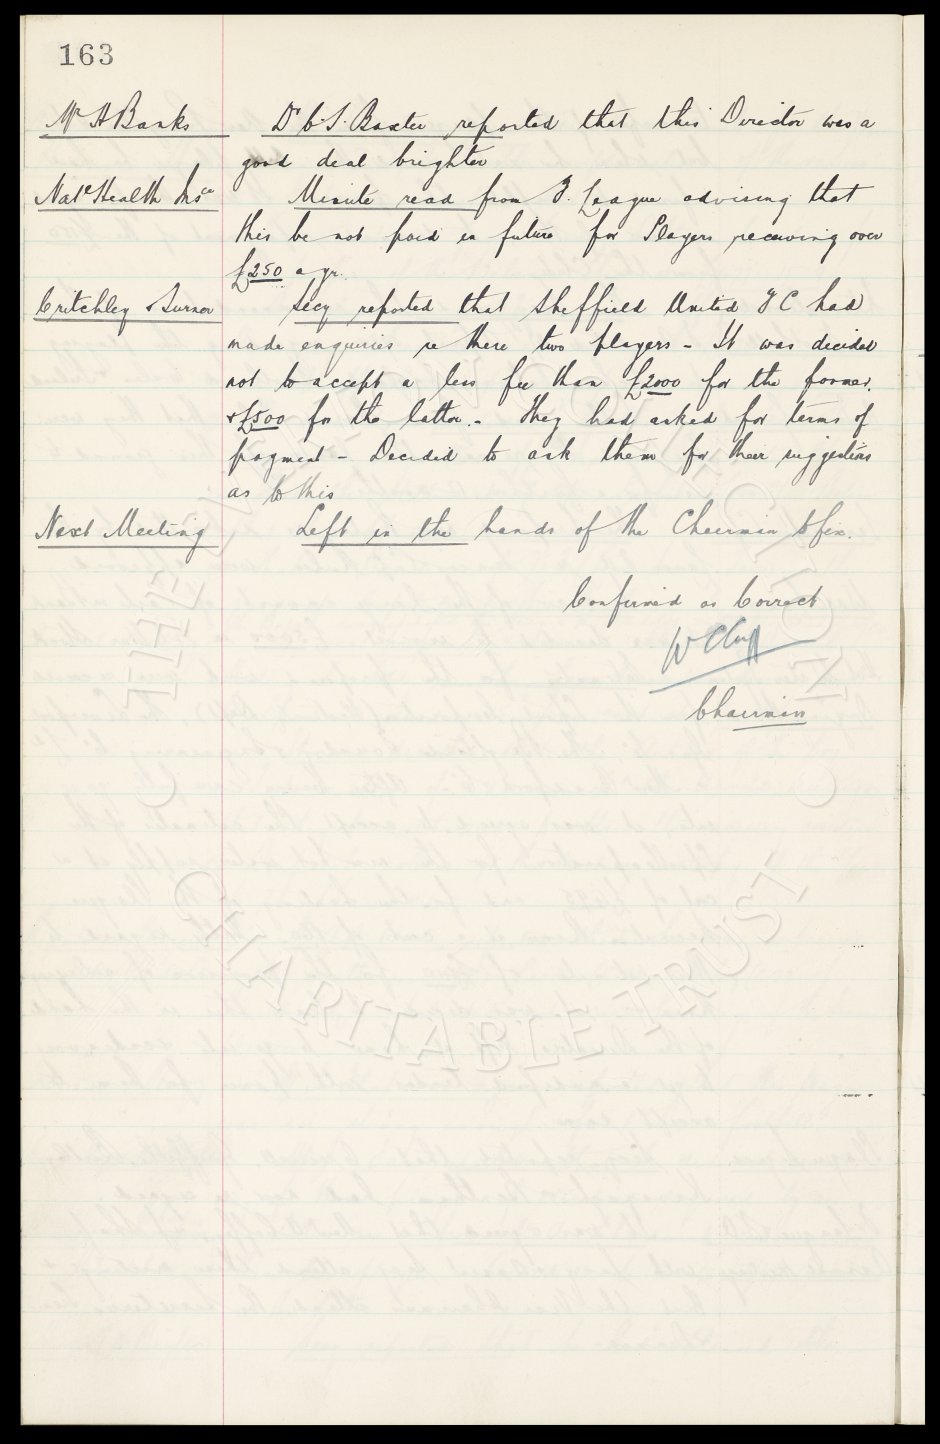 163
Mr H Banks Dr C. S. Baxter reported that this Director was a
good deal brighter
Natl Health Insce Minute read from F. League advising that
this be not paid in future for Players receiving over
£250 a yr.
Critchley & Turner Secy reported that Sheffield United F C had
made enquiries re these two players - It was decided
not to accept a less fee than £2000 for the former.
& £500 for the latter. - They had asked for terms of
payment - Decided to ask them for their suggestions
as to this
Next Meeting Left in the hands of the Chairman to fix.
Confirmed as Correct
W C Cuff
Chairman
THE
COLLECTION
CHARITABLE TRUST